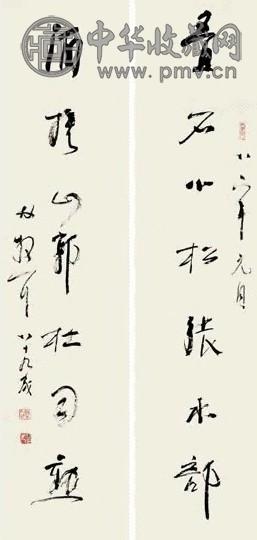 中华收藏网
www.pmv.cn
疊石小松張水部
八六年元月
酒旗山郭杜司勳
林散耳
八十九歲